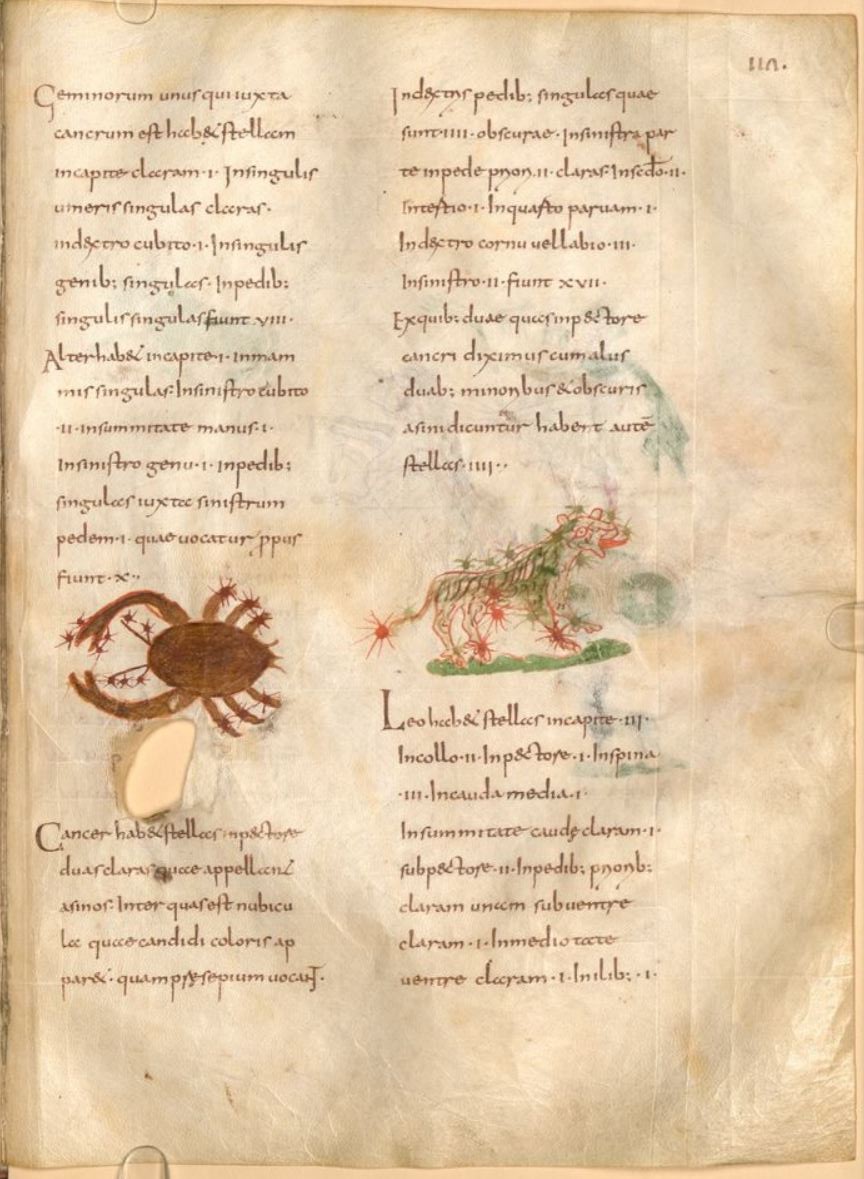 Geminorum unus qui iuxta
cancrum est hab& stellam
incapite claram·i· Insingulis
umeris singulas claras·
indextro cubito·i· Insingulis
genib; singulas· Inpedib;
singulis singulas fiunt·viii·
Alter hab& incapite·i· inmam
mis singulas· Insinistro cubito
·ii· insummitate manus·i·
Insinistro genu·i· inpedib;
singulas iuxta sinistrum
pedem·i· quae vocatur ppus
fiunt·x··
Cancer hab& stellas inp&ctore
duas claras quae appellant
asinos· Inter quas est nubicu
la quae candidi coloris ap
par&· quam psesepium vocant·
Indextris pedib; singulas quae
sunt·iiii· obscurae· Insinistra par
te inpede priori·ii· claras· Insecdo·ii·
Intertio·i· Inquarto paruam·i·
Indextro cornu uel labio·iii·
Insinistro·ii· fiunt xvii·
Exquib; duae quas inp&ctore
cancri diximus cum aliis
duab; minoribus & obscuris
asini dicuntur habent autē
stellas·iiii··
Leo hab& stellas incapite·iii·
Incollo·ii· Inp&ctore·i· Inspina
·iii· Incauda media·i·
Insummitate caudę claram·i·
subp&ctore·ii· Inpedib; priorib;
claram unam subuentre
claram·i· Inmedio tate
uentre claram·i· Inilib;·i·